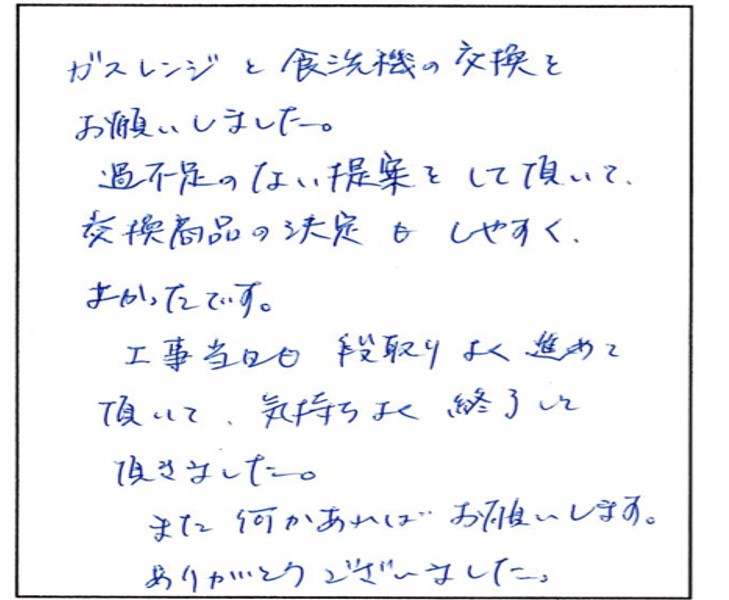 ガスレンジと食洗機の交換を
お願いしました。
過不足のない提案をして頂いて、
交換商品の決定もしやすく、
よかったです。
工事当日も段取りよく進めて
頂いて、気持ちよく終了して
頂きました。
また何かあればお願いします。
ありがとうございました。